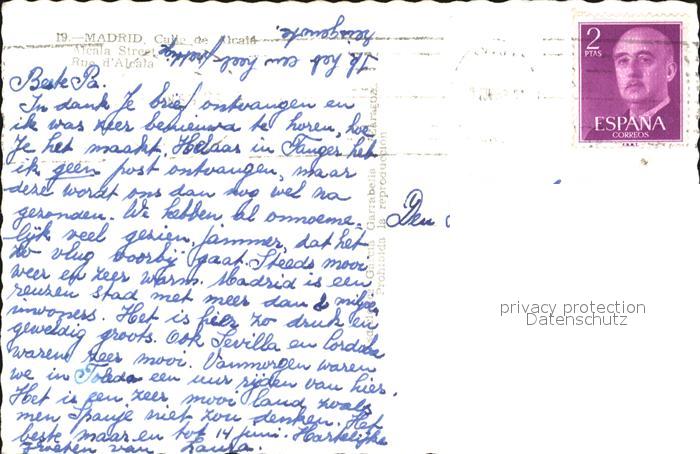 19.—MADRID, Calle de Alcalá
Alcalá Street
Rue d'Alcala
2
PTAS
ESPAÑA
CORREOS
Beste Pa.
In dank Je brief ontvangen en
ik was zeer benieuwd te horen, hoe
Je het maakt. Helaas in Tanger heb
ik geen post ontvangen, maar
deze wordt ons dan nog wel na
gezonden. We hebben al onnoeme-
lijk veel gezien, jammer, dat het
zo vlug voorbij gaat. Steeds mooi
weer en zeer warm. Madrid is een
reuzen stad met meer dan 2 miljoen
inwoners. Het is hier zo druk en
geweldig groots. Ook Sevilla en Cordoba
waren zeer mooi. Vanmorgen waren
we in Toledo een uur rijden van hier.
Het is een zeer mooi land, zoals
men Spanje niet zou denken. Het
beste maar en tot 14 juni. Hartelijke
groeten van
Den
Garcia Garrabella Zaragoza
Prohibida la reproducción
privacy protection
Datenschutz